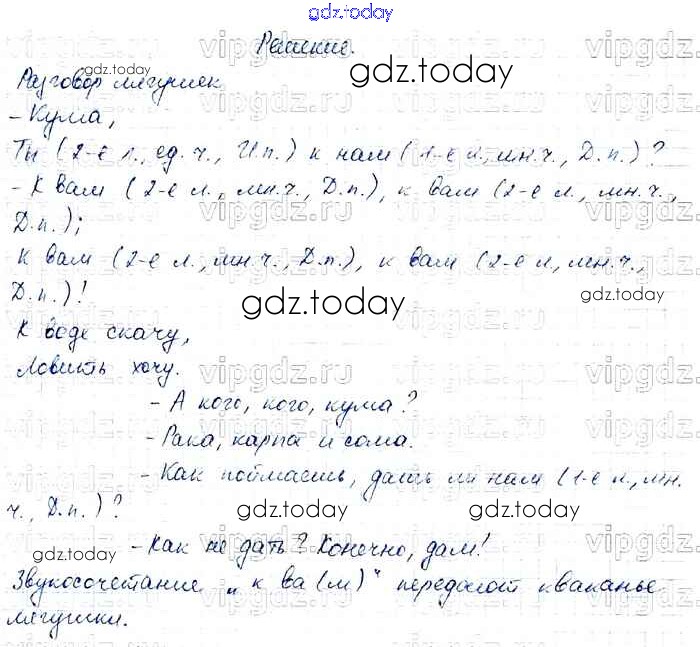 gdz.today
Решение.
Разговор лягушек
- Кума,
Ты (2-е л., ед. ч., И.п.) к нам (1-е л., мн.ч., Д.п.)?
- К вам (2-е л., мн.ч., Д.п.), к вам (2-е л., мн.ч.,
Д.п.);
К вам (2-е л., мн.ч., Д.п.), к вам (2-е л, мн.ч.,
Д.п.)!
К воде скачу,
Ловить хочу.
- А кого, кого, кума?
- Рака, карпа и сома.
- Как поймаешь, дашь ли нам (1-е л., мн.
ч., Д.п.)?
- Как не дать? Конечно, дам!
Звукосочетание „к ва(м)“ передают кваканье
лягушки.
gdz.today
gdz.today
gdz.today
gdz.today
gdz.today
gdz.today
vipgdz.ru
vipgdz.ru
vipgdz.ru
vipgdz.ru